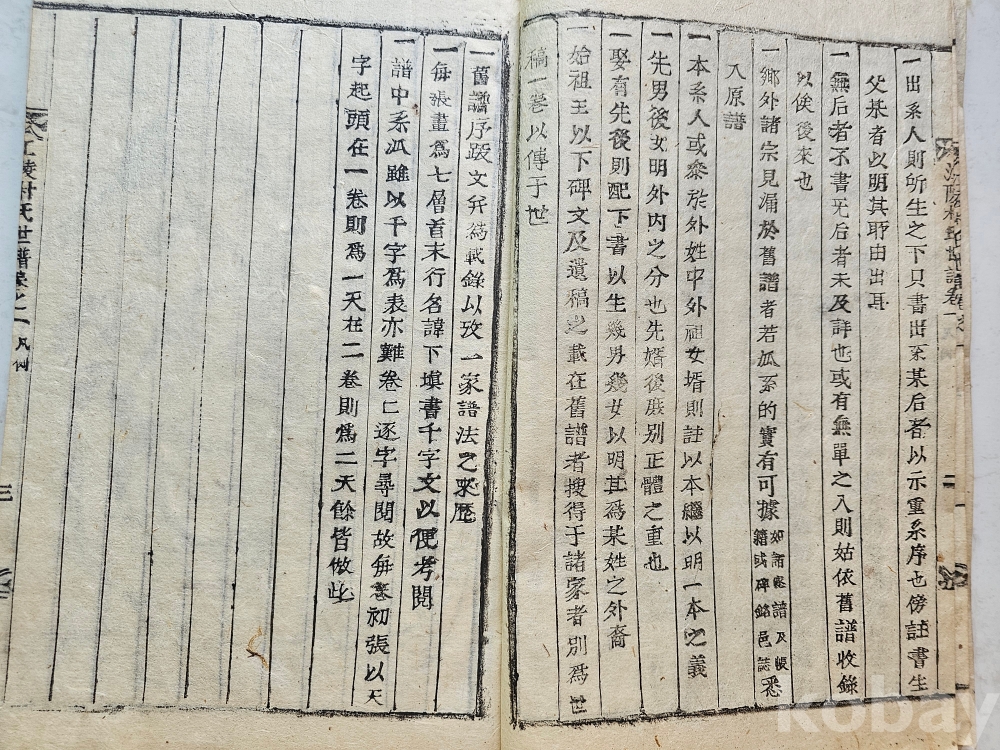 一出系人則所生之下只書出系某后者以示重系序也傍註書生
父某者以明其所由出耳
一無后者不書无后者未及詳也或有無單之入則姑依舊譜收錄
以俟後來也
一鄉外諸宗見漏於舊譜者若瓜系的實有可據如諸家譜及帳籍或碑銘邑誌悉
入原譜
一本系人或參於外姓中外祖女壻則註以本繼以明一本之義
一先男後女明外內之分也先婿後庶别正體之重也
一娶有先後則配下書以生幾男幾女以明其爲某姓之外裔
一始祖王以下碑文及遺稿之載在舊譜者搜得于諸家者別爲世
稿一卷以傳于世
一舊譜序跋文弁爲載錄以攷一家譜法之來歷
一每張畫爲七層首末行名諱下塡書千字文以便考閱
一譜中系瓜雖以千字爲表亦難卷仁逐字尋閱故每卷初張以天
字起頭在一卷則爲一天在二卷則爲二天餘皆倣此
江陵 氏世譜卷之一 凡例
三
二
kobay